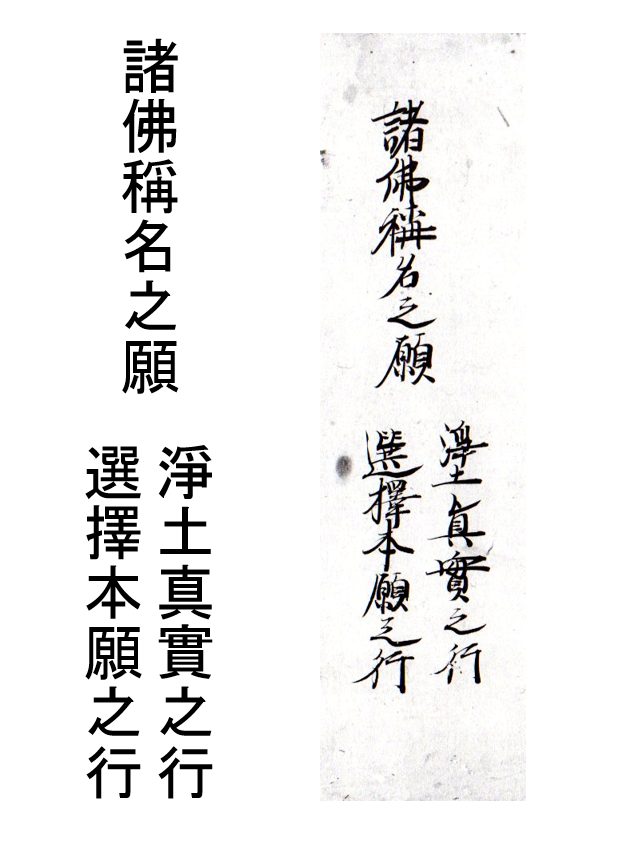 諸佛稱名之願
淨土真實之行
選擇本願之行
諸佛稱名之願
淨土眞實之行
選擇本願之行